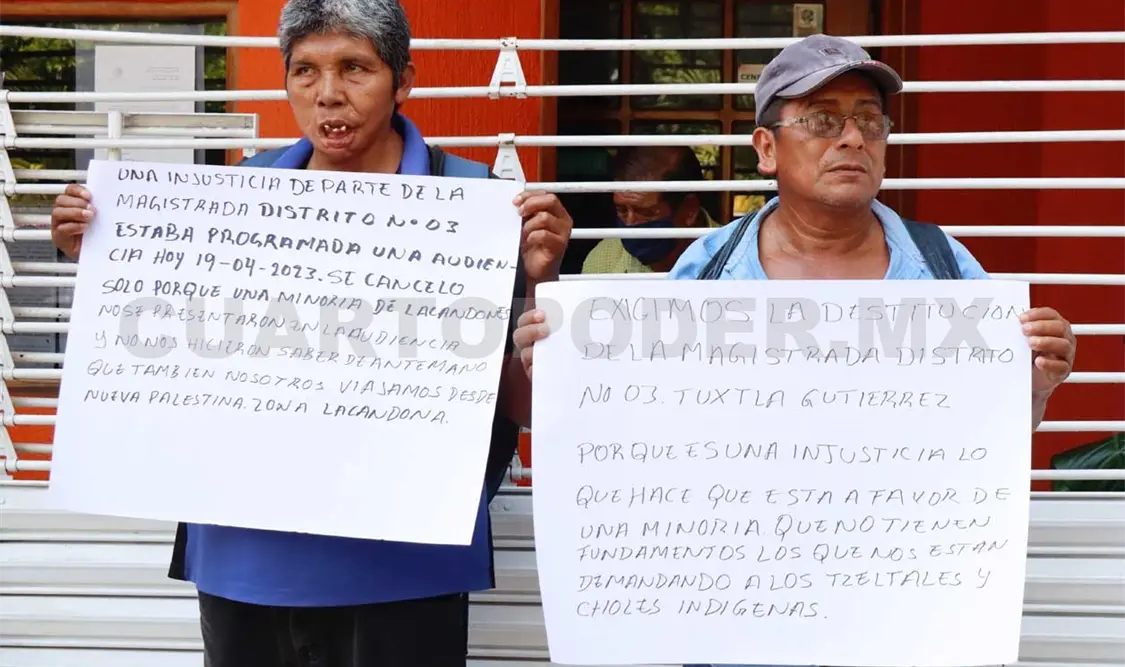 UNA INJUSTICIA DE PARTE DE LA
MAGISTRADA DISTRITO No 03
ESTABA PROGRAMADA UNA AUDIEN-
CIA HOY 19-04-2023. SE CANCELO
SOLO PORQUE UNA MINORIA DE LACANDONES
NO SE PRESENTARON EN LA AUDIENCIA
Y NO NOS HICIERON SABER DE ANTEMANO
QUE TAMBIEN NOSOTROS VIAJAMOS DESDE
NUEVA PALESTINA. ZONA LACANDONA.
EXIGIMOS LA DESTITUCION
DE LA MAGISTRADA DISTRITO
NO 03. TUXTLA GUTIERREZ
POR QUE ES UNA INJUSTICIA LO
QUE HACE QUE ESTA A FAVOR DE
UNA MINORIA. QUE NO TIENEN
FUNDAMENTOS LOS QUE NOS ESTAN
DEMANDANDO A LOS TZELTALES Y
CHOLES INDIGENAS.
CUARTOPODER.MX